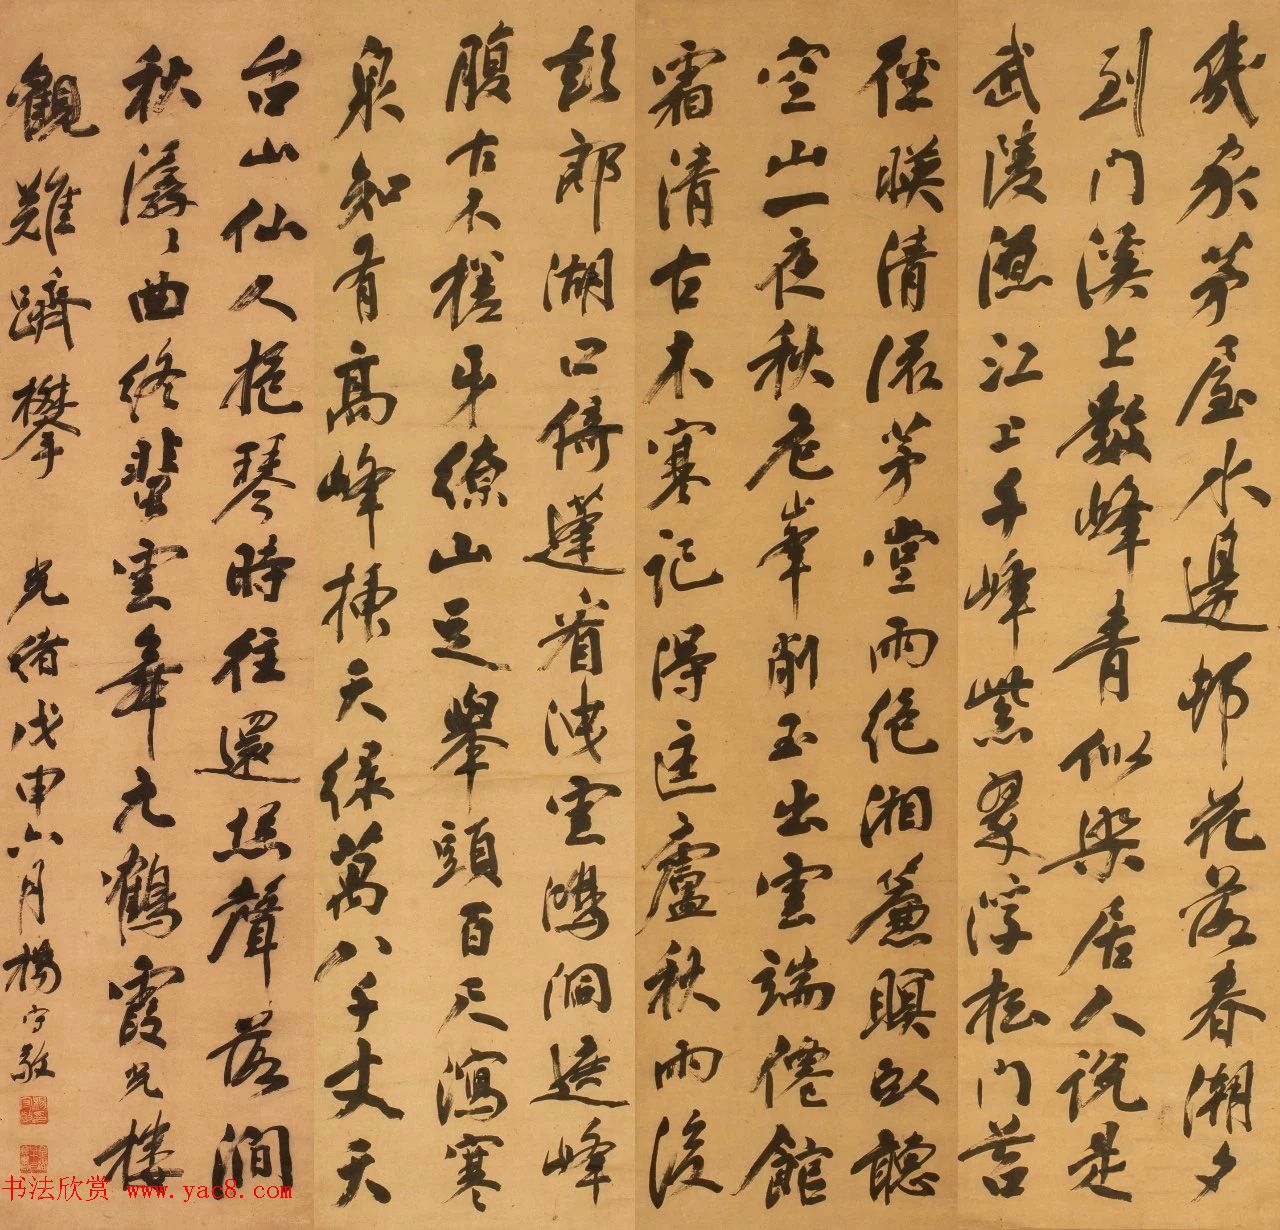 幾家茅屋水邊邨花落春潮夕
到門溪上數峰青似染居人說是
武陵源江上千峰紫翠浮松門苔
徑暎清流茅堂雨絕湘簾暝臥聽
空山一夜秋危峯削玉出雲端僊館
霜清古木寒記得匡廬秋雨後
彭郎湖口倚蓬看洩雲鴻洞遮峰
腹古木槎牙繚山足舉頭百尺瀉寒
泉知有高峰插天綠萬八千丈天
台山仙人抱琴時往還松聲落澗
秋潺〻曲終蜚雲舞元鶴霞光樓
觀難躋攀 光緒戊申六月楊守敬
书法欣赏 www.yac8.com